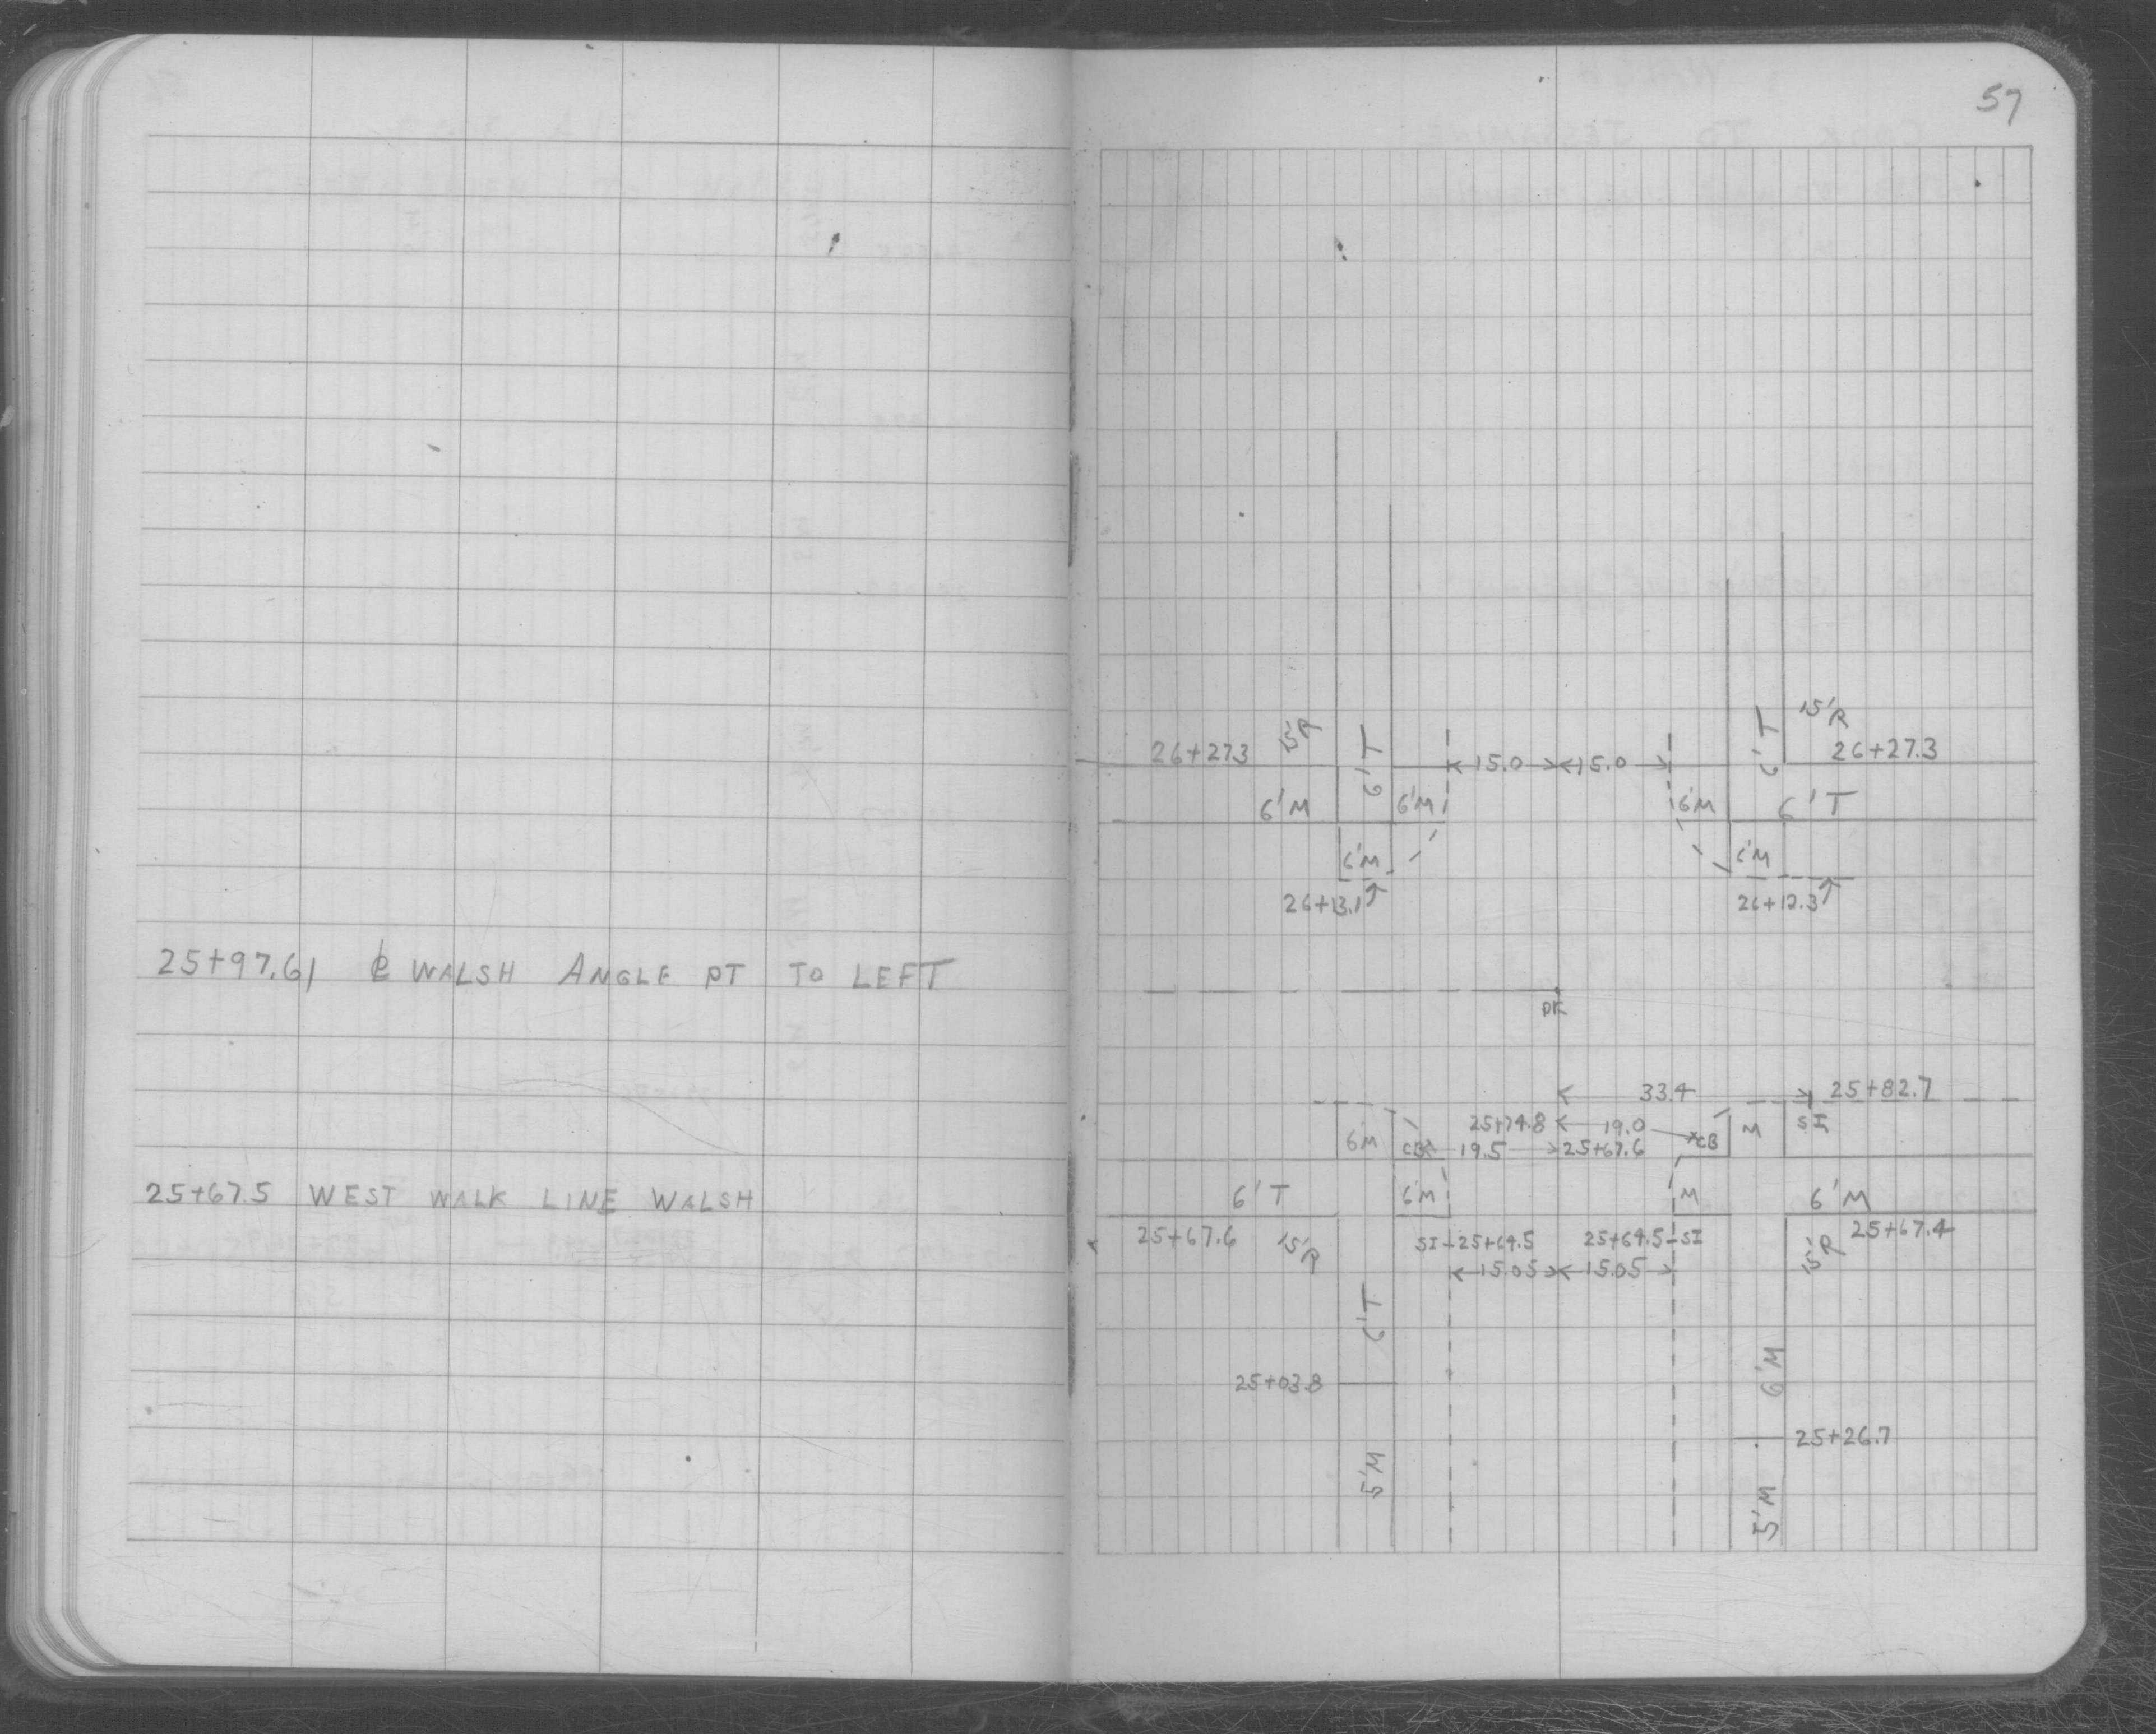 57
15'R
15'R
26+27.3
6'T
15.0
15.0
6'T
26+27.3
6'M
6'M
6'M
6'T
6'M
6'M
26+13.1
26+12.3
25+97.61 ℄ WALSH ANGLE PT TO LEFT
PK
33.4
25+82.7
25+74.8
19.0
M
SI
6'M
CB
19.5
25+67.6
CB
25+67.5 WEST WALK LINE WALSH
6'T
6'M
M
6'M
25+67.6
15'R
SI-25+64.5
25+64.5-SI
15'R
25+67.4
15.05
15.05
6'T
6'M
25+03.8
25+26.7
5'M
5'M